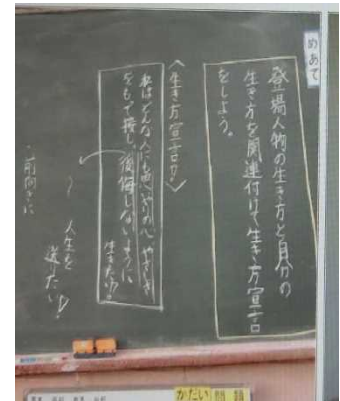 めあて
登場人物の生き方と自分の
生き方を関連付けて生き方宣言
をしよう。
〈生き方宣言!!〉
私はどんな人にも思いやりの心、やさしさ
をもって接し、後悔しないように
生きたい!!
人生を
送りたい!!
・前向きに
かだい 問題